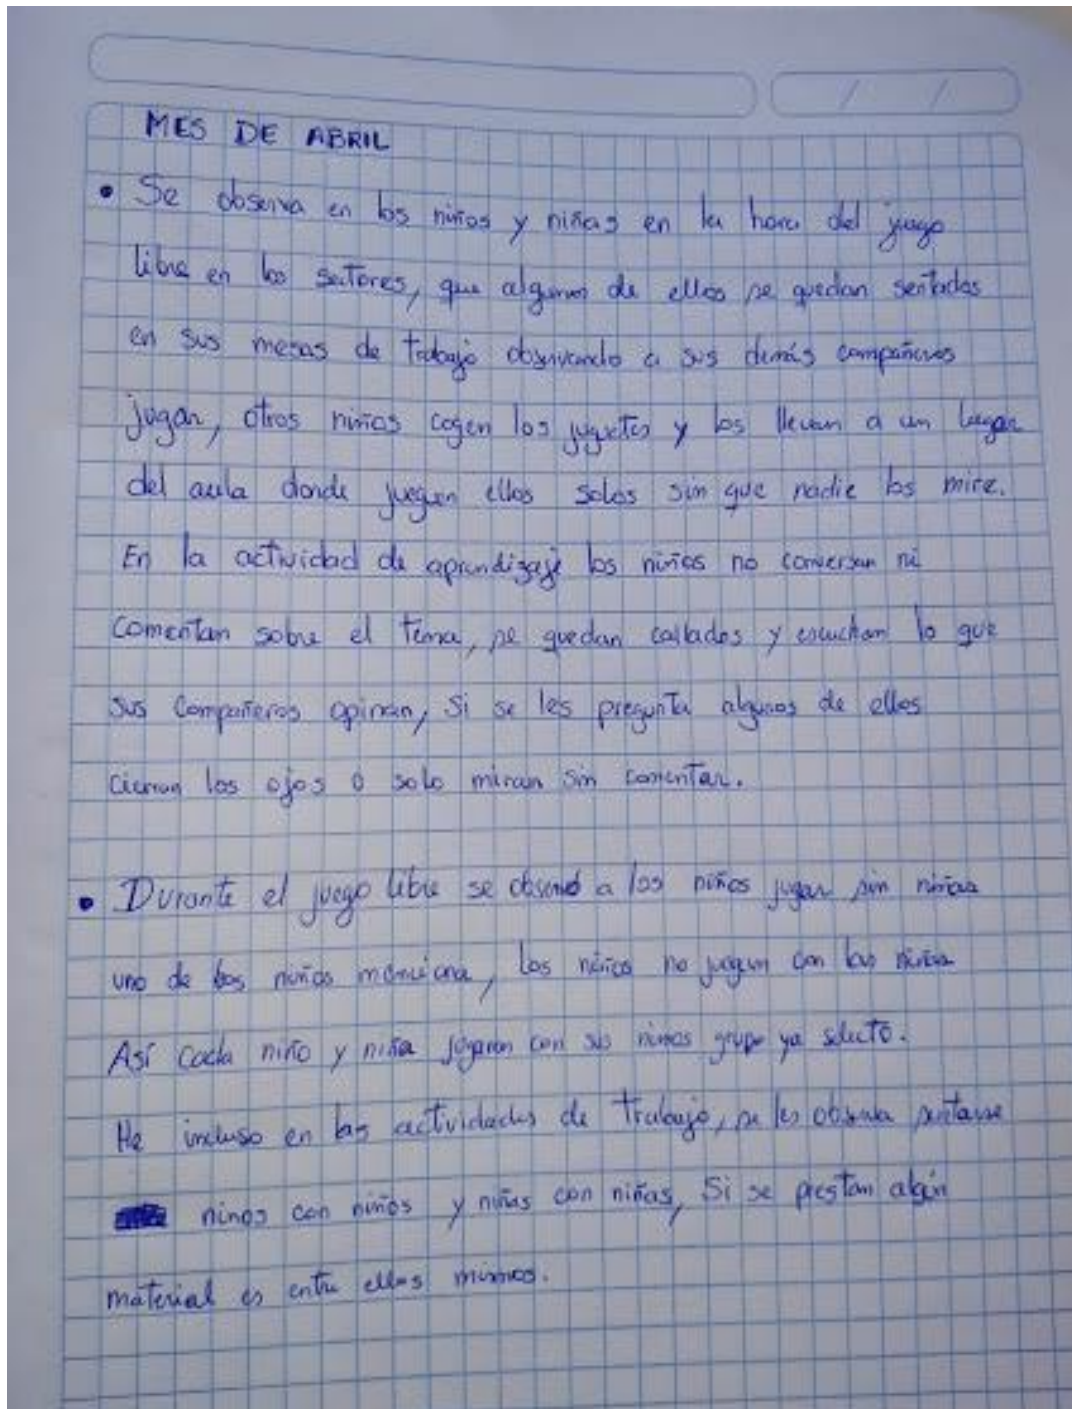 MES DE ABRIL
• Se observa en los niños y niñas en la hora del juego
libre en los sectores, que algunos de ellos se quedan sentados
en sus mesas de trabajo observando a sus demás compañeros
jugar, otros niños cogen los juguetes y los llevan a un lugar
del aula donde jueguen ellos solos sin que nadie los mire.
En la actividad de aprendizaje los niños no conversan ni
comentan sobre el tema, se quedan callados y escuchan lo que
sus compañeros opinan, Si se les pregunta algunos de ellos
cierran los ojos o solo miran sin comentar.
• Durante el juego libre se observó a los niños jugar sin niñas
uno de los niños menciona, los niños no juegan con las niñas
Así cada niño y niña jugaron con sus grupo ya selecto.
He incluso en las actividades de trabajo, se les observa sentarse
ninos con niños y niñas con niñas, Si se prestan algún
material es entre ellos mismos.